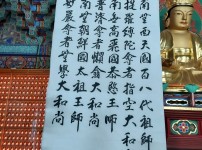 南無西天國百八代祖師
提羅縛陀尊者指空大和
南無高麗國恭愍王師
普濟尊者懶翁大和尚
南無朝鮮國太祖王師
妙嚴尊者無學大和尚